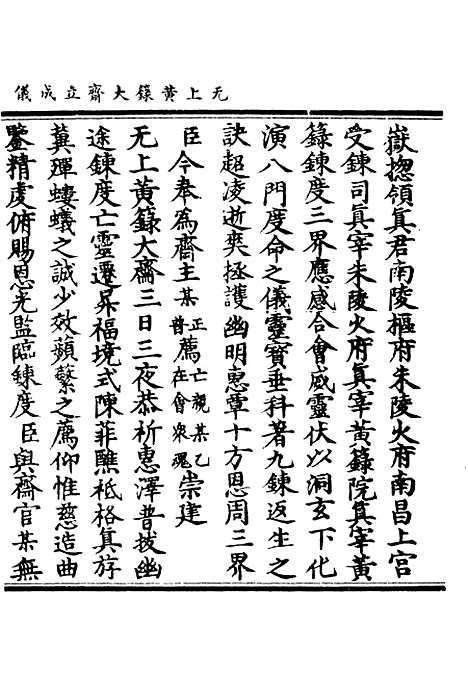 无上黄籙大齋立成儀
嶽摠領真君南陵樞府朱陵火府南昌上宫
受鍊司真宰朱陵火府真宰黄籙院真宰黄
籙鍊度三界應感合會威靈伏以洞玄下化
演八門度命之儀靈寶垂科著九鍊返生之
訣超凌逝爽拯護幽明惠覃十方恩周三界
臣今奉爲齋主某正薦亡親某乙普薦在會衆魂崇建
无上黄籙大齋三日三夜恭祈惠澤普拔幽
途鍊度亡靈遷昇福境式陳菲醮祗格真斿
冀殫螻蟻之誠少效蘋蘩之薦仰惟慈造曲
鑒精虔俯賜恩光監臨鍊度臣與齋官某無